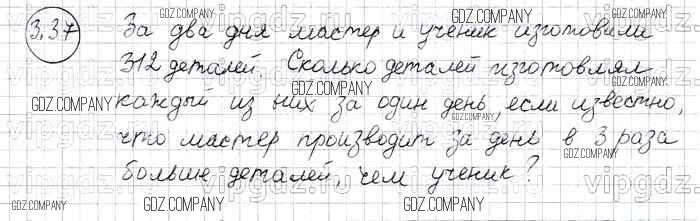 GDZ.COMPANY GDZ.COMPANY GDZ.COMPANY
3.37 За два дня мастер и ученик изготовили
312 деталей. Сколько деталей изготовлял
GDZ.COMPANY
GDZ.COMPANY каждый из них за один день, если известно,
GDZ.COMPANY GDZ.COMPANY
vipgdz.ru vipgdz.ru vipgdz.ru
что мастер производит за день в 3 раза
GDZ.COMPANY
больше деталей, чем ученик?
vipgdz.ru vipgdz.ru vipgdz.ru
GDZ.COMPANY GDZ.COMPANY GDZ.COMPANY GDZ.COMPANY